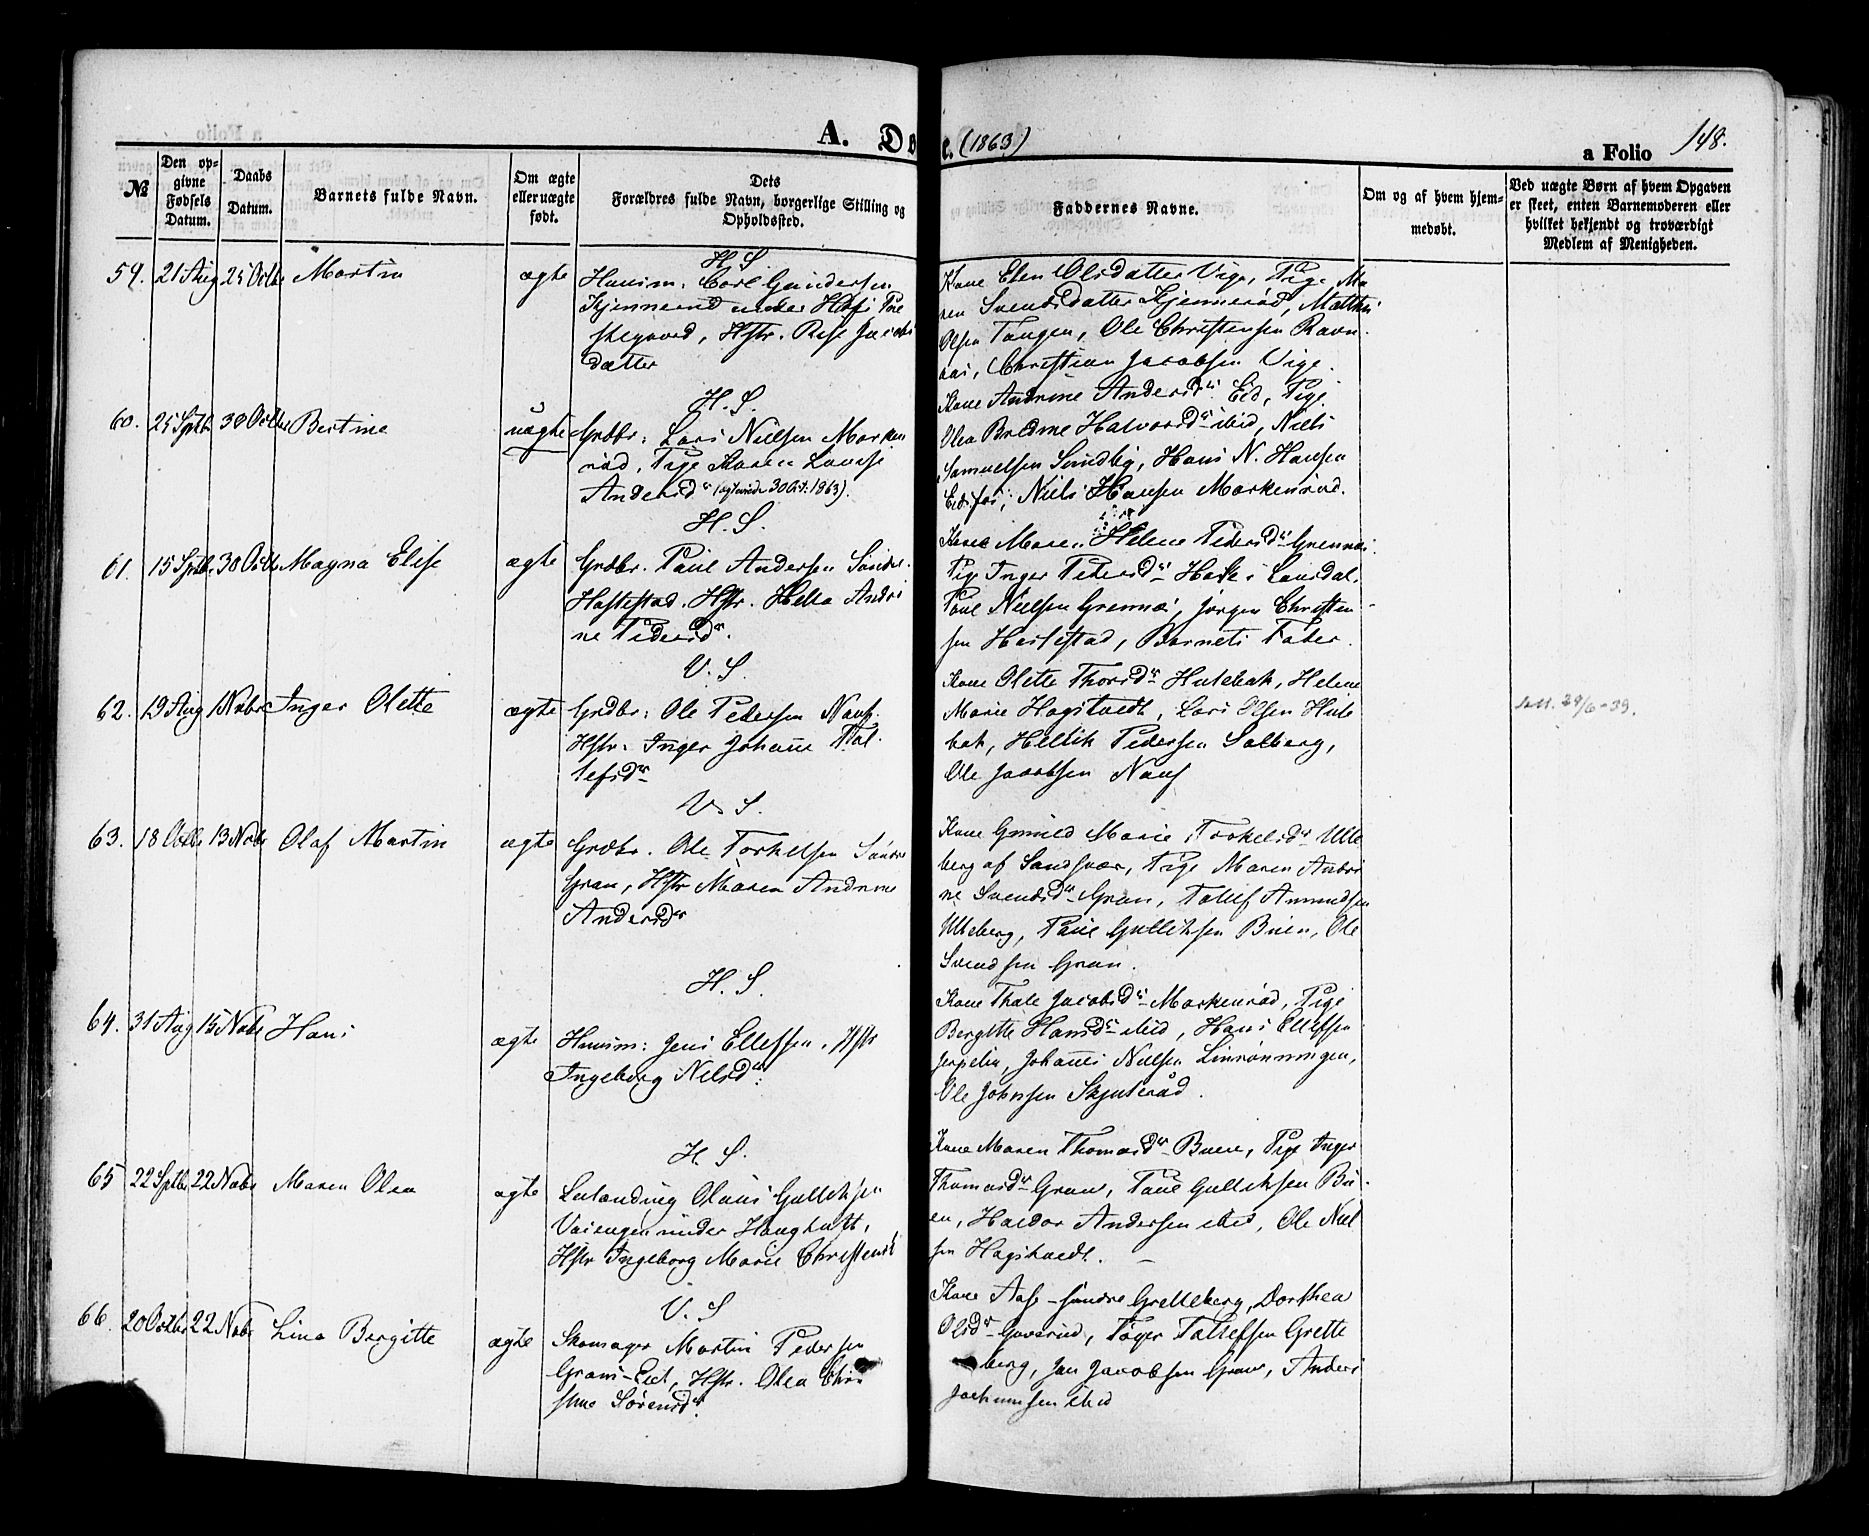 A. Dø e. (1863)
a Folio 148.
№
Den op-
givne
Fødsels
Datum.
Daabs
Datum.
Barnets fulde Navn.
Om ægte
eller uægte
født.
Dets
Forældres fulde Navn, borgerlige Stilling og
Opholdssted.
Faddernes Navne.
Om og af hvem hjem-
medøbt.
Ved uægte Børn af hvem Opgaven
er skeet, enten Barnemoderen eller
hvilket bekjendt og troværdigt
Medlem af Menigheden.
H. S.
59. 21 Aug 25 Octbr Martin ægte
Huusm: Carl Gundersen
Kjennerud under Hafs Præ
stegaard, Hstr.
datter
Kone Elen Olsdatter Vige, Pige Ma
ren Svendsdatter Kjennerød,
Olsen Tangen, Ole Christensen Ravn
aas, Christian Jacobsen Vige.
H. S.
60. 25 Sptb 30 Octbr Bertine uægte
Grdbr: Lars Nielsen Marken
rød, Pige Karen Lovise
Andersdr
Kone Andrine Andersdr. Eid, Pige
Olea Halvorsdr ibid, Niels
Samuelsen Sundby, Hans N. Hansen
Eidsfos, Niels Hansen Markenrød.
H. S.
61. 15 Sptbr 30 Octbr Magna Elise ægte
Grdbr. Paul Andersen Søndre
Hostestad. Hstr. Andri
ne Pedersdr.
Kone Maren Helene Pedersdr Grennes.
Pige Inger Pedersdr
Paul Nielsen Grennes, Jørgen Christen-
sen Barnets Fader.
V. S.
62. 19 Aug 1 Novbr Inger Olette ægte
Grdbr: Ole Pedersen
Hstr: Inger Johanne Tol
lefsdr
Kone Olette Thorsdr Hulebak, Helene
Marie Hagstvedt, Lars Olsen Hule
bak, Hellik Pedersen Solberg,
Ole Jacobsen
29/6-39.
V. S.
63. 18 Octbr 13 Novbr Olaf Martin ægte
Grdbr. Ole Torkelsen Søndre
Gran, Hstr Maren Andrine
Andersdr
Kone Gunild Marie Torkelsdr Ulle
berg af Sandsvær, Pige Maren Andri
ne Svendsdr Gran, Tollef Amundsen
Ulleberg, Paul Gulliksen Buen, Ole
Svendsen Gran.
H. S.
64. 31 Aug 15 Novbr Hans ægte
Huusm: Jens Ellefsen, Hstr
Ingeborg Nilsdr:
Kone Thale Jacobsdr Markenrød, Pige
Bergitte Hansdr ibid, Hans Ellefsen
Johannes Nielsen Linrønningen,
Ole Johnsen Skjulerød.
H. S.
65 22 Sptbr 22 Novbr Maren Olea ægte
Olaus Gulliksen
under
Hstr Ingeborg Marie Christensd
Kone Maren Thomasdr Buen, Pige Inger
Thomasdr Gran, Paul Gulliksen Bu-
en, Haldor Andersen ibid, Ole Niel
sen Hagstvedt.
V. S
66. 20 Octbr 22 Novbr Lina Bergitte ægte
Skomager Martin Pedersen
Grans-Eiet, Hstr. Olea Chri
stine Sørensdr.
Kone Aase søndre Gretteberg, Dorthea
Olsdr Goverud, Tøger Tollefsen Grette
berg, Jan Jacobsen Gran, Anders
Jochumsen ibid